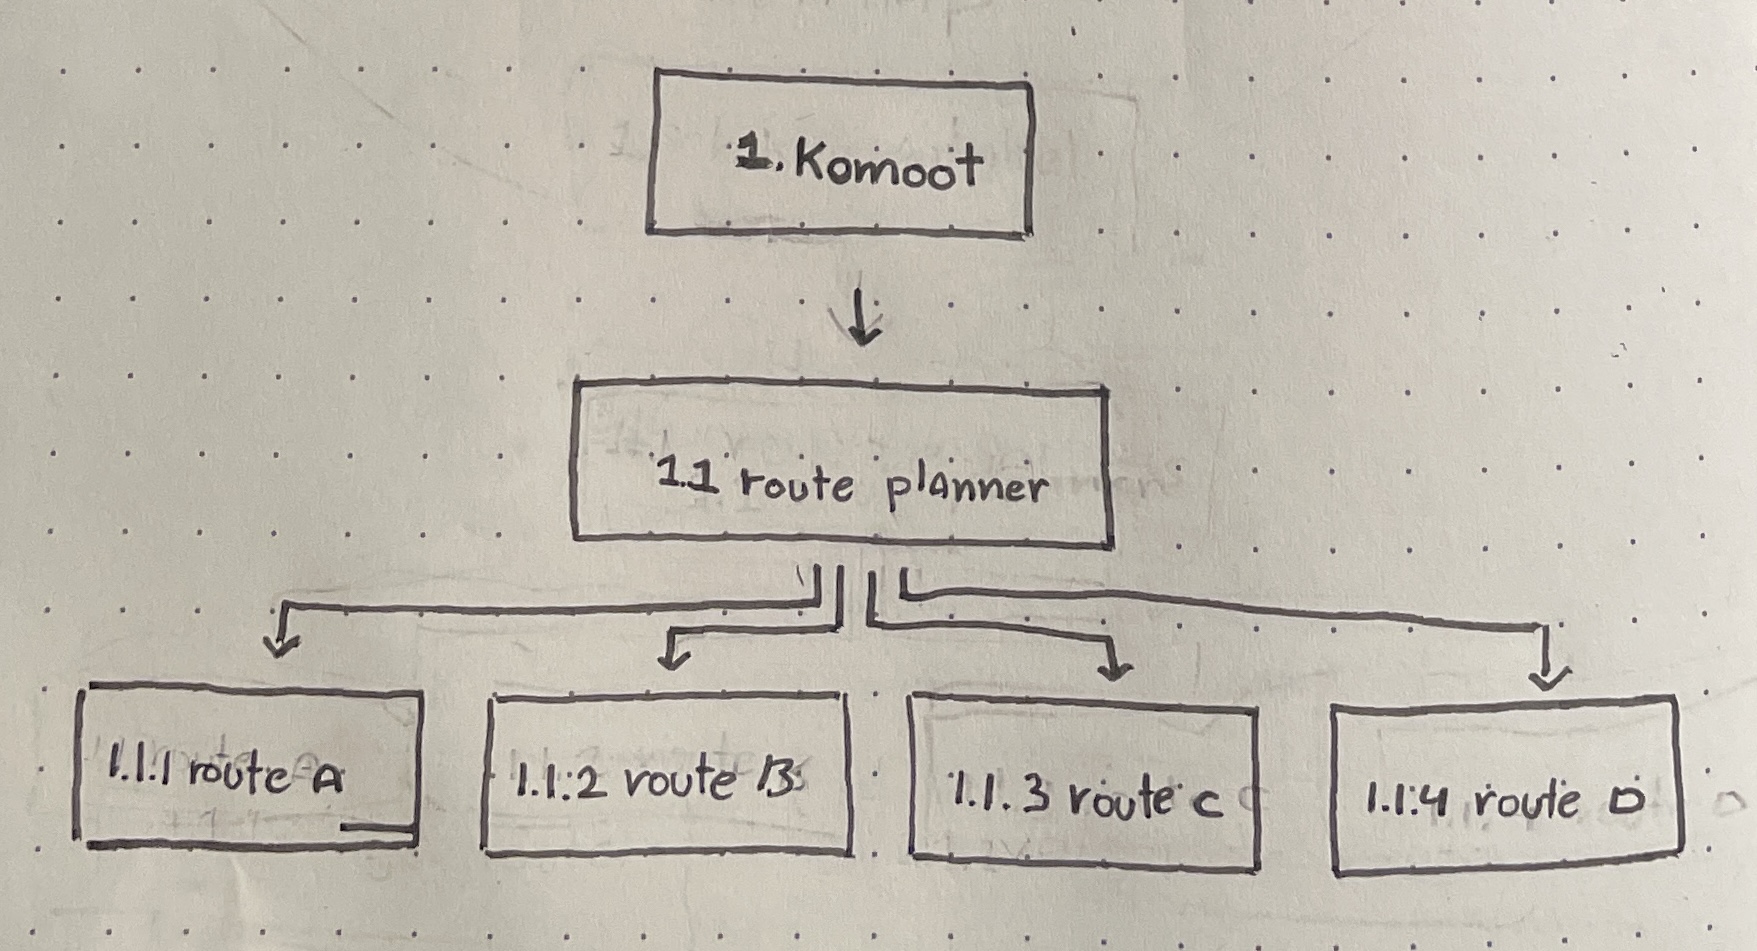 1. Komoot
1.1 route planner
1.1.1 route A
1.1.2 route B
1.1.3 route C
1.1.4 route D